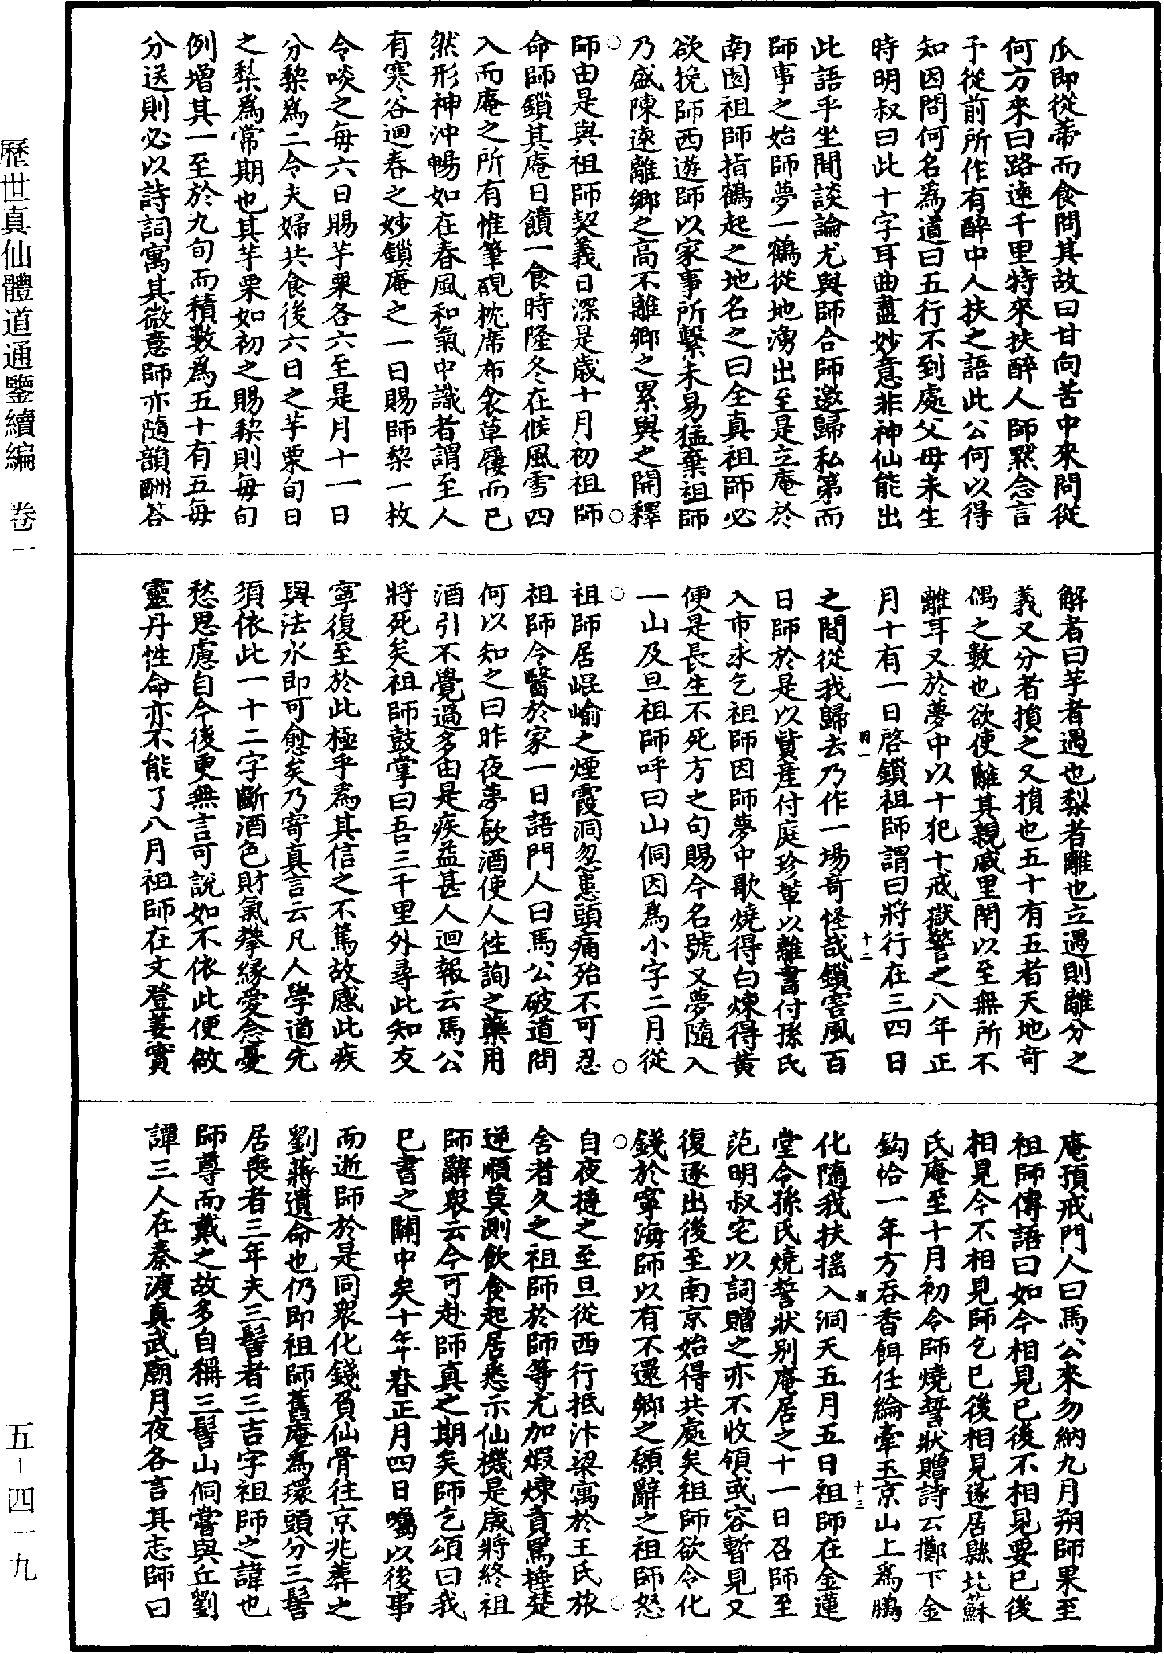 歷世真仙體道通鑒續編　卷一
五－四一九
瓜即從蒂而食問其故曰甘向苦中來問從
何方來曰路遠千里特來扶醉人師默念言
予從前所作有醉中人扶之語此公何以得
知因問何名為道曰五行不到處父母未生
時明叔曰此十字耳曲盡妙意非神仙能出
此語乎坐間談論尤與師合師邀歸私第而
師事之始師夢一鶴從地湧出至是立庵於
南園祖師指鶴起之地名之曰全真祖師必
欲挽師西遊師以家事所繫未易猛棄祖師
乃盛陳遠離鄉之高不離鄉之累與之開釋
師由是與祖師契義日深是歲十月初祖師
命師鎖其庵日饋一食時隆冬在候風雪四
入而庵之所有惟筆硯枕席布衾草屨而已
然形神沖暢如在春風和氣中識者謂至人
有寒谷迴春之妙鎖庵之一日賜師梨一枚
令啖之每六日賜芋栗各六至是月十一日
分梨為二令夫婦共食後六日之芋栗旬日
之梨為常期也其芋栗如初之賜梨則每旬
例增其一至於九旬而積數為五十有五每
分送則必以詩詞寓其微意師亦隨韻酬答
解者曰芋者遇也梨者離也立遇則離分之
義又分者損之又損也五十有五者天地奇
偶之數也欲使離其親戚里閈以至無所不
離耳又於夢中以十犯十戒獄警之八年正
月十有一日啓鎖祖師謂曰將行在三四日
之間從我歸去乃作一場奇怪哉鎖害風百
日師於是以貲產付庭珍輩以離書付孫氏
入市求乞祖師因師夢中歌燒得白煉得黃
便是長生不死方之句賜今名號又夢隨入
一山及旦祖師呼曰山侗因為小字二月從
祖師居崐崳之煙霞洞忽患頭痛殆不可忍
祖師令醫於家一日語門人曰馬公破道問
何以知之曰昨夜夢飲酒使人往詢之藥用
酒引不覺過多由是疾益甚人迴報云馬公
將死矣祖師鼓掌曰吾三千里外尋此知友
寧復至於此極乎為其信之不篤故感此疾
與法水即可愈矣乃寄真言云凡人學道先
須依此一十二字斷酒色財氣攀緣愛念憂
愁思慮自今後更無言可說如不依此便做
靈丹性命亦不能了八月祖師在文登姜實
庵預戒門人曰馬公來勿納九月朔師果至
祖師傳語曰如今相見已後不相見要已後
相見今不相見師乞已後相見遂居縣北蘇
氏庵至十月初令師燒誓狀贈詩云擲下金
鈎恰一年方吞香餌任綸牽玉京山上為鵬
化隨我扶搖入洞天五月五日祖師在金蓮
堂令孫氏燒誓狀別庵居之十一日召師至
范明叔宅以詞贈之亦不收領或容暫見又
復逐出後至南京始得共處矣祖師欲令化
錢於寧海師以有不還鄉之願辭之祖師怒
自夜捶之至旦從西行抵汴梁寓於王氏旅
舍者久之祖師於師等尤加煆煉責罵捶楚
逆順莫測飲食起居悉示仙機是歲將終祖
師辭眾云今可赴師真之期矣師乞頌曰我
已書之關中矣十年春正月四日囑以後事
而逝師於是同眾化錢負仙骨往京兆葬之
劉蔣遺命也仍即祖師舊庵為環頭分三髻
居喪者三年夫三髻者三吉字祖師之諱也
師尊而戴之故多自稱三髻山侗嘗與丘劉
譚三人在秦渡真武廟月夜各言其志師曰